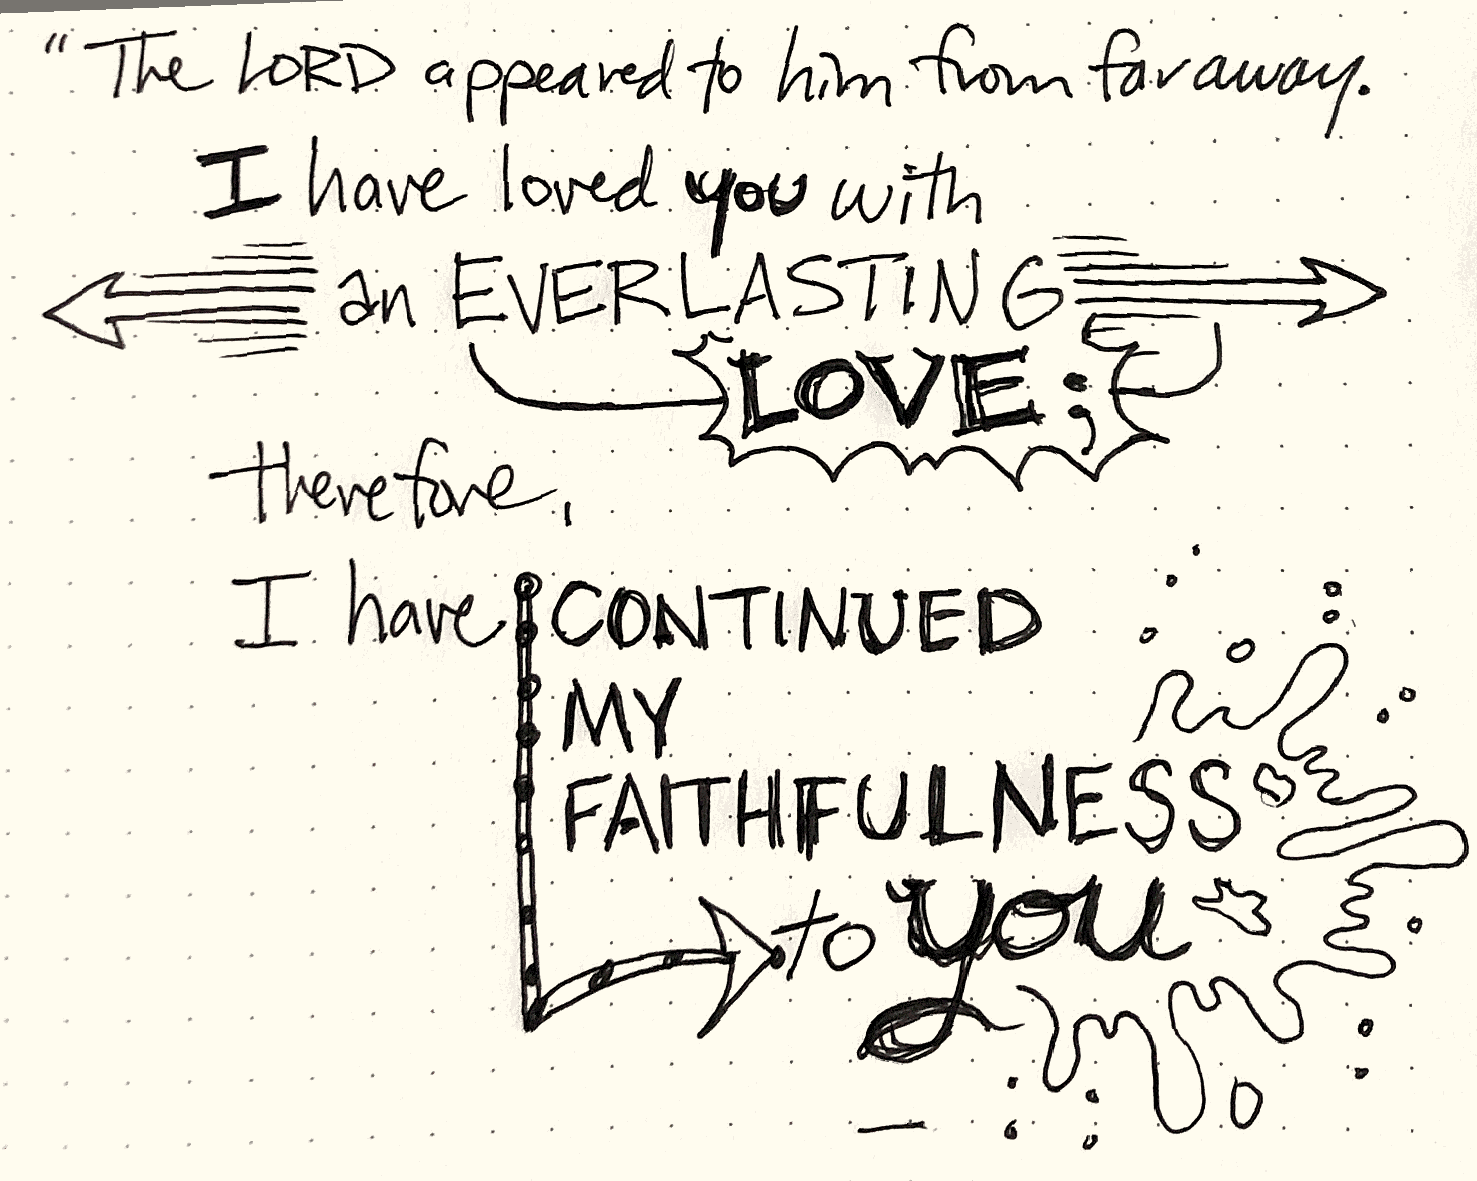 “The LORD appeared to him from far away.
I have loved you with
an EVERLASTING
LOVE;
therefore,
I have CONTINUED
MY
FAITHFULNESS
to you